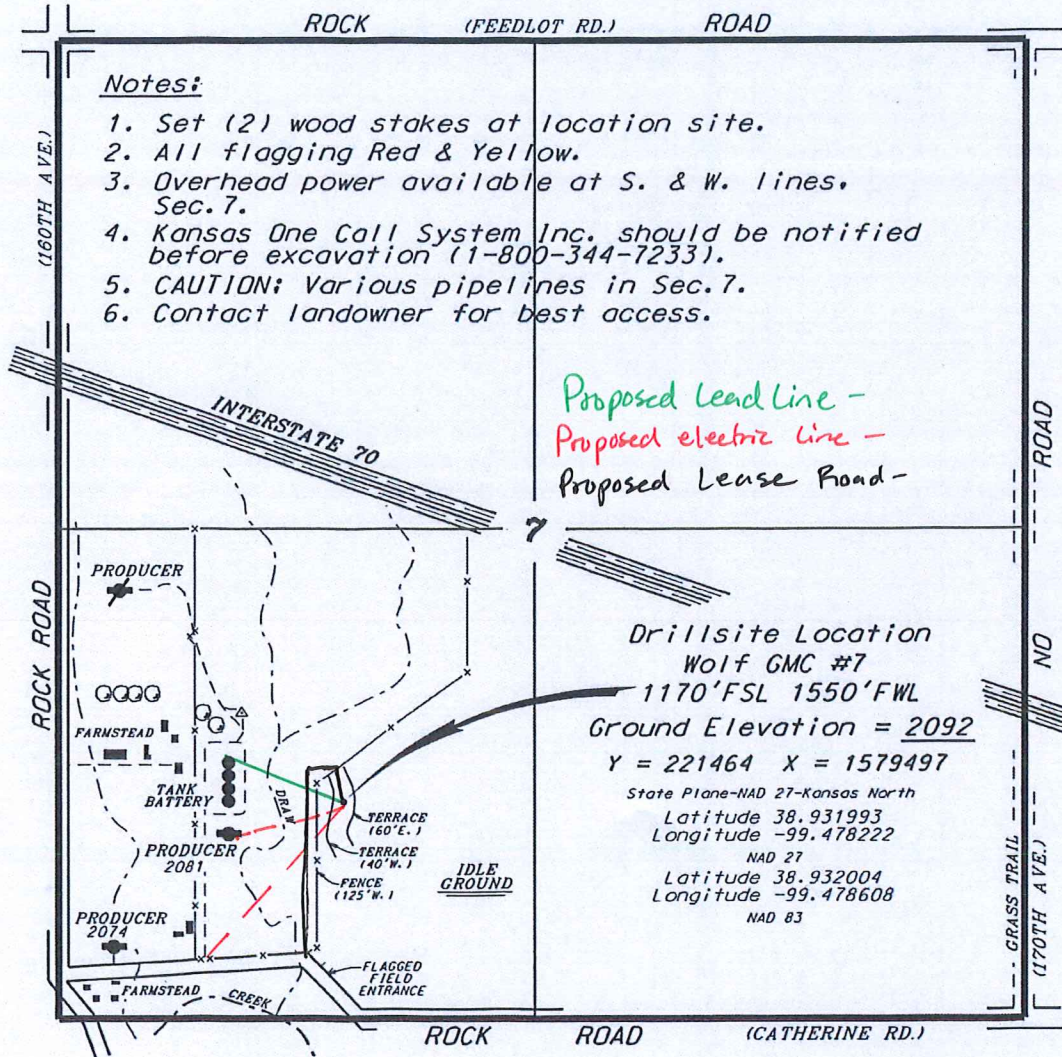 ROCK (FEEDLOT RD.) ROAD
(160TH AVE.)
Notes:
1. Set (2) wood stakes at location site.
2. All flagging Red & Yellow.
3. Overhead power available at S. & W. lines.
Sec.7.
4. Kansas One Call System Inc. should be notified
before excavation (1-800-344-7233).
5. CAUTION: Various pipelines in Sec.7.
6. Contact landowner for best access.
INTERSTATE 70
Proposed Lead Line -
Proposed electric line -
Proposed Lease Road -
7
ROAD
NO
GRASS TRAIL
(170TH AVE.)
ROCK ROAD
PRODUCER
FARMSTEAD
TANK
BATTERY
DRAW
PRODUCER
2081
PRODUCER
2074
FARMSTEAD
CREEK
TERRACE
(60'E.)
TERRACE
(40'W.)
FENCE
(125'W.)
IDLE
GROUND
FLAGGED
FIELD
ENTRANCE
Drillsite Location
Wolf GMC #7
1170'FSL 1550'FWL
Ground Elevation = 2092
Y = 221464 X = 1579497
State Plane-NAD 27-Kansas North
Latitude 38.931993
Longitude -99.478222
NAD 27
Latitude 38.932004
Longitude -99.478608
NAD 83
ROCK ROAD (CATHERINE RD.)